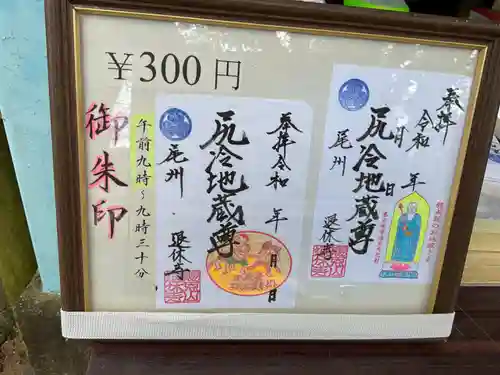 ￥300円
御朱印
午前九時～九時三十分
奉拝 令和 年 月 日
尻冷地蔵尊
尾州・退休寺
奉拝
令和 年 月 日
尻冷地蔵尊
尾州 退休寺